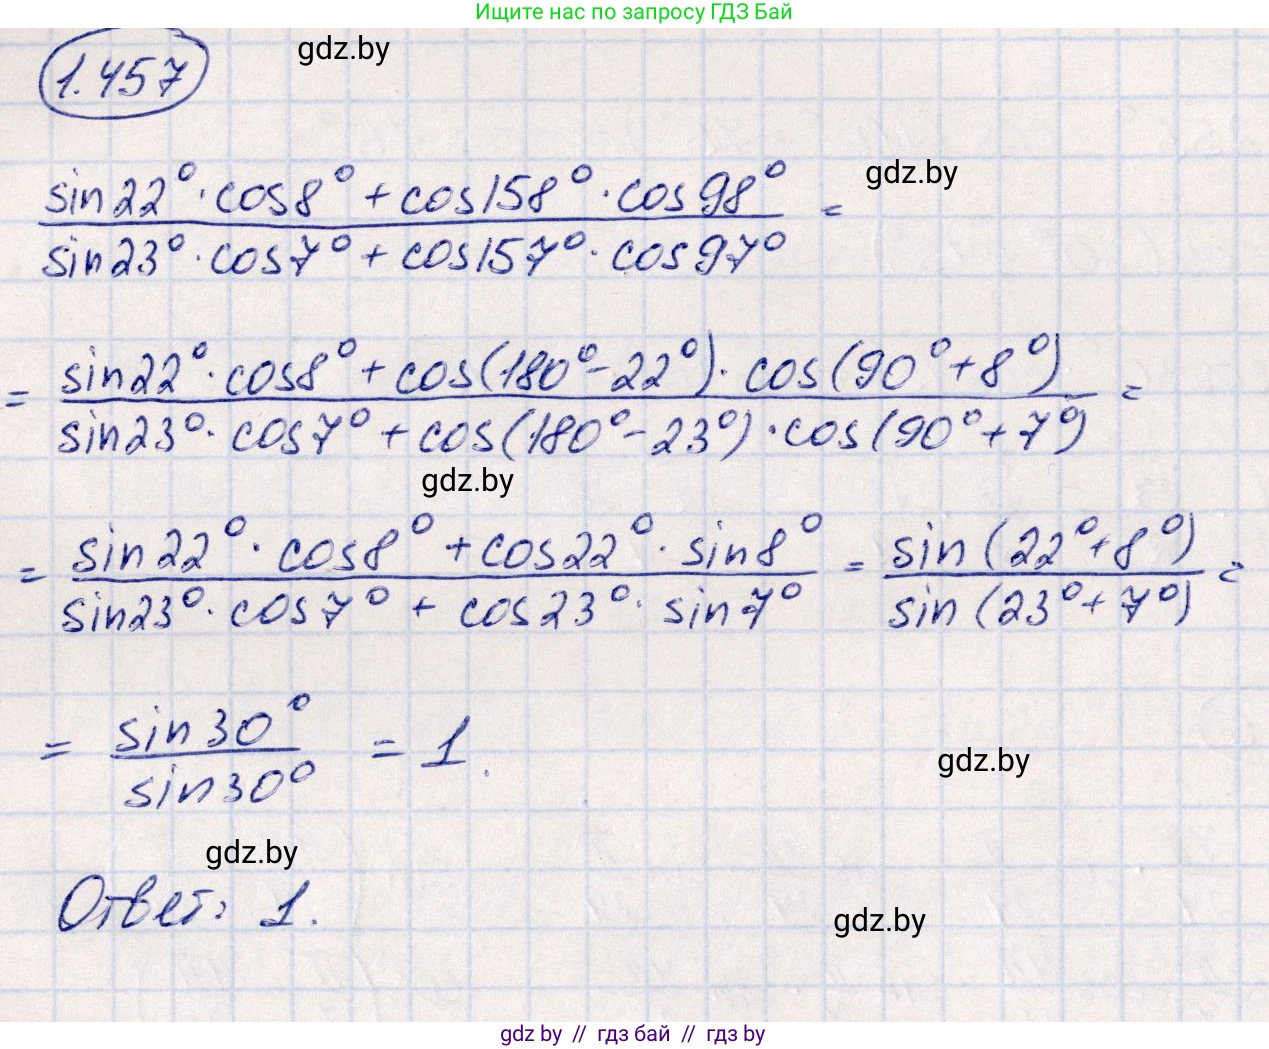 Ищите нас по запросу ГДЗ Бай
1.457
gdz.by
sin22°·cos8° + cos158°·cos98° =
sin23°·cos7° + cos157°·cos97°
gdz.by
= sin22°·cos8° + cos(180°-22°)·cos(90°+8°) =
sin23°·cos7° + cos(180°-23°)·cos(90°+7°)
gdz.by
= sin22°·cos8° + cos22°·sin8° = sin(22°+8°) =
sin23°·cos7° + cos23°·sin7° sin(23°+7°)
= sin30° = 1.
sin30°
gdz.by
gdz.by
Ответ: 1.
gdz.by
gdz by // гдз бай // гдз by